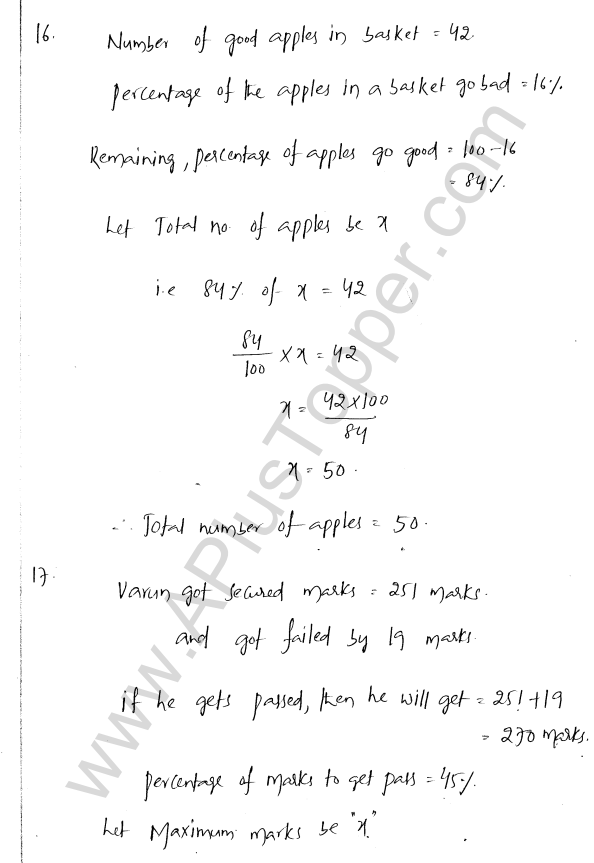 16. Number of good apples in basket = 42.
percentage of the apples in a basket go bad = 16%.
Remaining, percentage of apples go good = 100 - 16
= 84%.
Let Total no. of apples be x
i.e 84% of x = 42
84/100 × x = 42
x = 42×100/84
x = 50.
∴ Total number of apples = 50.
17. Varun got secured marks = 251 marks.
and got failed by 19 marks.
if he gets passed, then he will get = 251+19
= 270 marks.
percentage of marks to get pass = 45%.
Let Maximum marks be "x"
www.APlusTopper.com